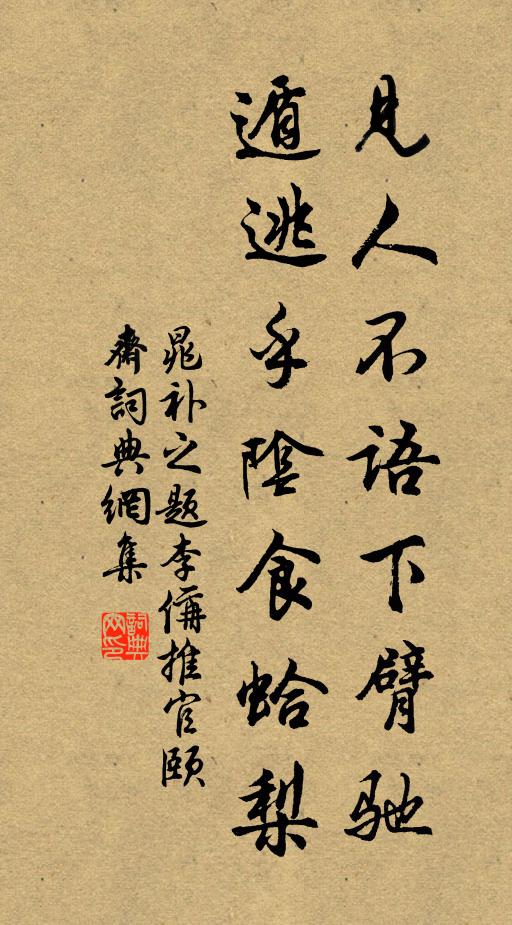 見人不語下臂馳
遁逃乎陰食蛤梨
晁补之题李偁推官颐
齋詞典網集
詞典網印